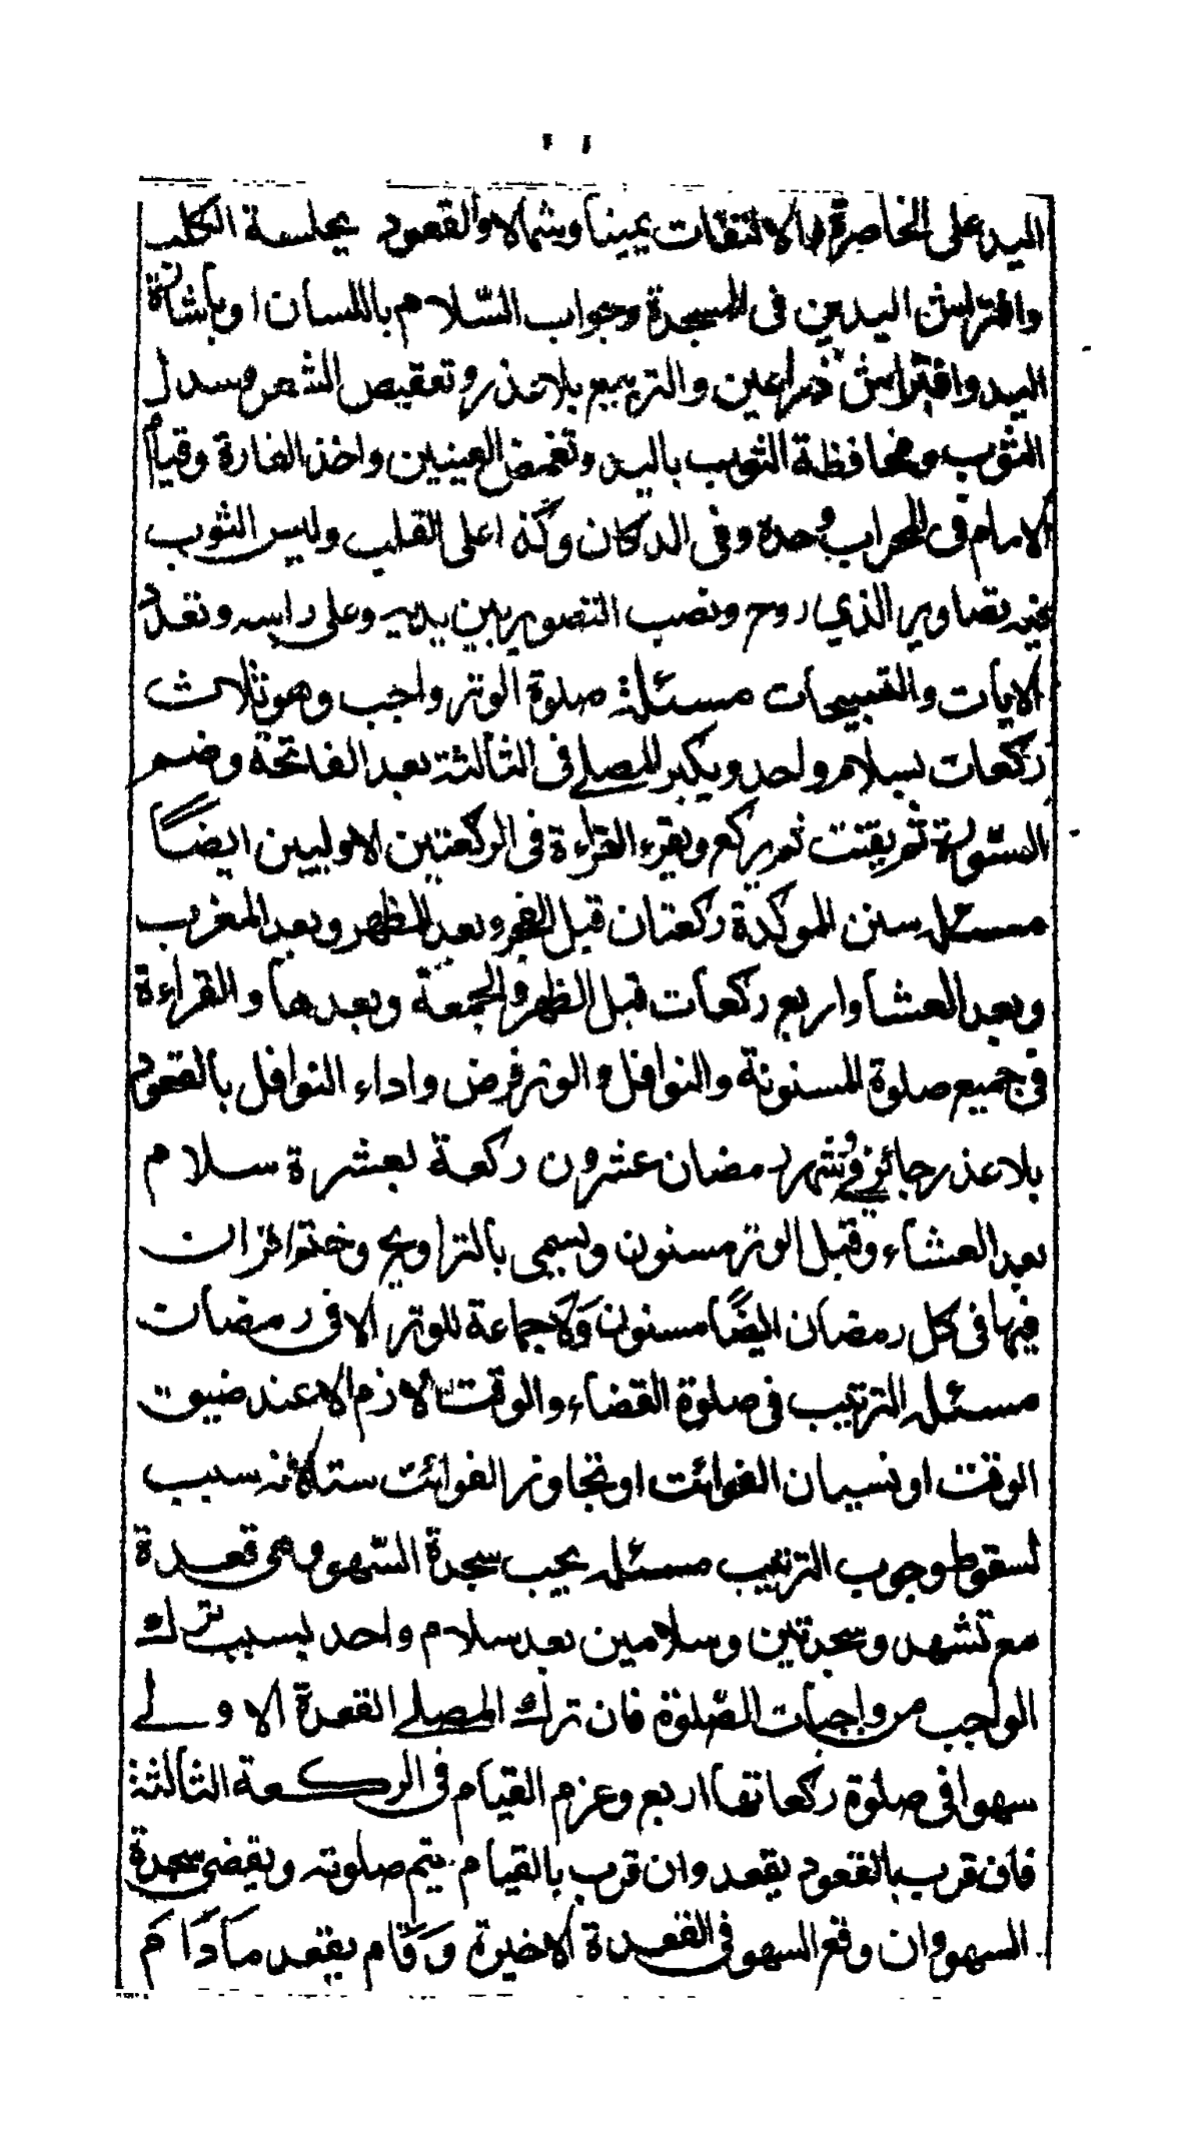 اليد على الخاصرة والالتفات يمينا وشمالا والقعود بجلسة الكلب
وافتراش اليدين فى السجدة وجواب السّلام باللسان او باشارة
اليد وافتراش ذراعين والتربيع بلا عذر وتعقيص الشعر وسدل
الثوب ومحافظة الثوب باليد وتغمض العينين واخذ الفارة وقيام
الامام فى المحراب وحده وفى الدكان وكذا على القلب ولبس الثوب
فيه تصاوير الذي روح ونصب التصوير بين يديه وعلى راسه وتعدد
الايات والتسبيحات مسئلة صلوة الوتر واجب وهو ثلاث
ركعات بسلام واحد ويكبر المصلے فى الثالثة بعد الفاتحة وضم
السّورة ثم يقنت ثم يركع ويقرء القراءة فى الركعتين الاوليين ايضًا
مسئله سنن الموكدة ركعتان قبل الفجر وبعد الظهر وبعد المغرب
وبعد العشا واربع ركعات قبل الظهر والجمعة وبعدها والقراءة
فى جميع صلوة المسنونة والنوافل والوتر فرض واداء النوافل بالقعود
بلا عذر جائز وفى شهر رمضان عشرون ركعة بعشرة سلام
بعد العشاء وقبل الوتر مسنون ويسمى بالتراويح وختم القران
فيها فى كل رمضان ايضًا مسنون وَلَا جماعة للوتر الا فى رمضان
مسئله الترتيب فى صلوة القضاء والوقت لازم الا عند ضيق
الوقت او نسيان الفوائت او تجاوز الفوائت ستة لانه سبب
لسقوط وجوب الترتيب مسئله يجب سجدة السّهو وهى قعدة
مع تشهد وسجدتين وسلامين بعد سلام واحد بسبب ترك
الواجب من واجبات الصّلوة فان ترك المصلے القعدة الاولے
سهوا فى صلوة ركعاتها اربع وعزم القيام فى الركعة الثالثة
فان قرب بالقعود يقعد وان قرب بالقيام يتم صلوته ويقضى سجدة
السهو وان وقع السهو فى القعدة الاخيرة وَقَام يقعد مَادَامَ